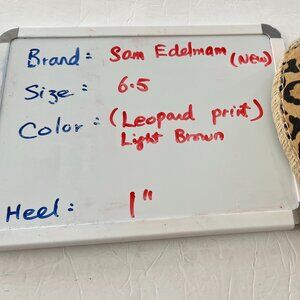 Brand: Sam Edelmam (NEW)
Size: 6.5
Color: (Leopard print)
Light Brown
Heel: 1"